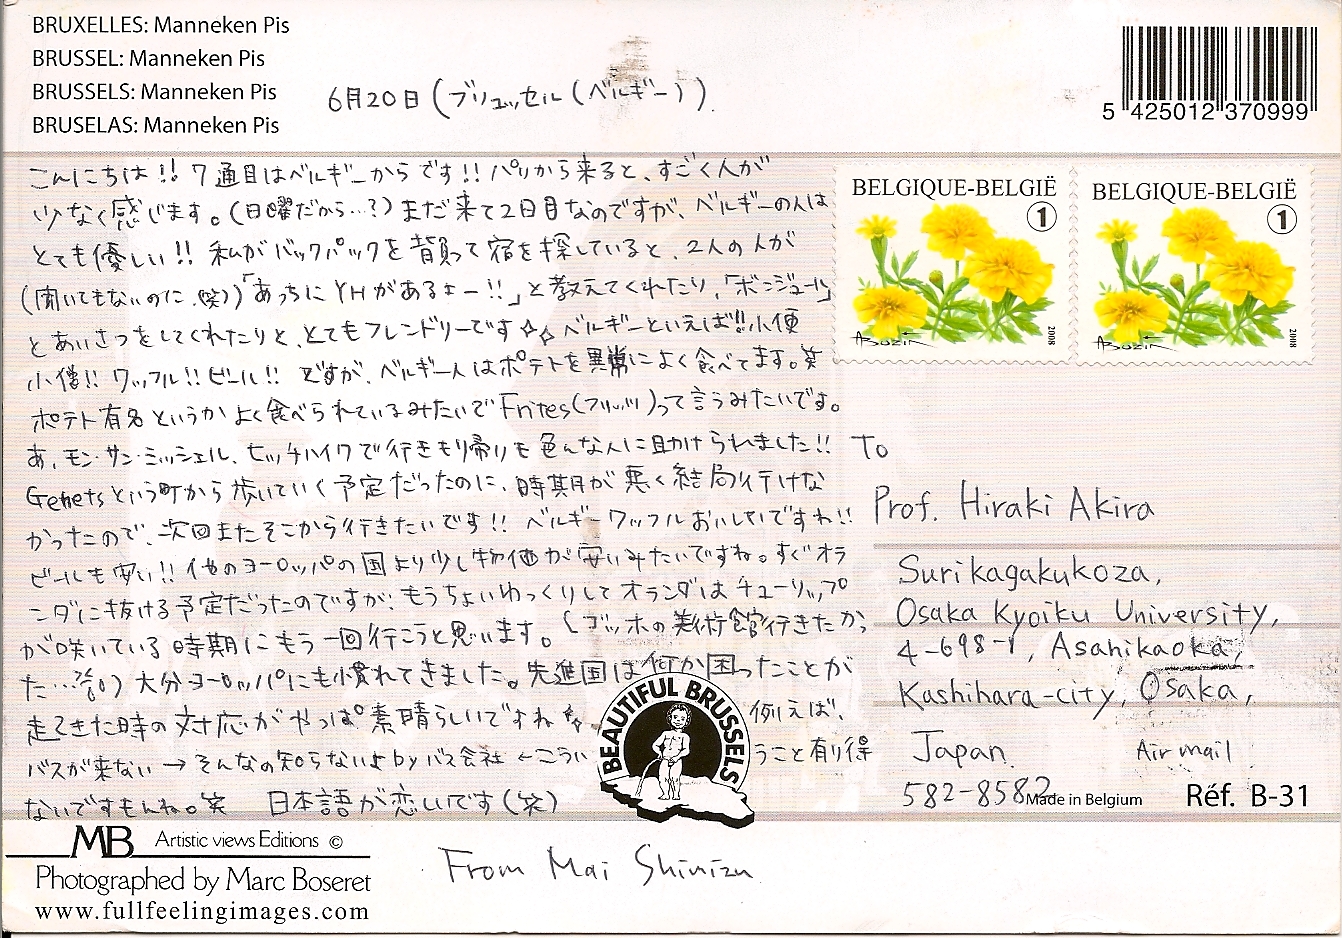 BRUXELLES: Manneken Pis
BRUSSEL: Manneken Pis
BRUSSELS: Manneken Pis
BRUSELAS: Manneken Pis
6月20日(ブリュッセル(ベルギー))
5 425012 370999
こんにちは!! 7通目はベルギーからです!! パリから来ると、すごく人が
少なく感じます。(日曜だから…?)まだ来て2日目なのですが、ベルギーの人は
とても優しい!! 私がバックパックを背負って宿を探していると、2人の人が
(聞いてもないのに(笑))「あっちにYHがあるよー!!」と教えてくれたり、「ボンジュール」
とあいさつをしてくれたりと、とてもフレンドリーです☆☆ ベルギーといえば!!小便
小僧!! ワッフル!! ビール!! ですが、ベルギー人はポテトを異常によく食べてます。笑
ポテト有名というかよく食べられているみたいでFrites(フリッツ)って言うみたいです。
あ、モン・サン・ミッシェル、ヒッチハイクで行きも帰りも色んな人に助けられました!!
Genetsという町から歩いていく予定だったのに、時期が悪く結局行けな
かったので、次回またそこから行きたいです!! ベルギーワッフルおいしいですね!!
ビールも安い!! 他のヨーロッパの国より少し物価が安いみたいですね。すぐオラ
ンダに抜ける予定だったのですが、もうちょいゆっくりしてオランダはチューリップ
が咲いている時期にもう一回行こうと思います。(ゴッホの美術館行きたかっ
た…) 大分ヨーロッパにも慣れてきました。先進国は何か困ったことが
起きた時の対応がやっぱ素晴らしいですね☆ 例えば、
バスが来ない → そんなの知らないよ by バス会社 ← こうい うこと有り得
ないですもんね。笑 日本語が恋しいです(笑)
BELGIQUE-BELGIË
1
ABUZIN
2008
BELGIQUE-BELGIË
1
ABUZIN
2008
To
Prof. Hiraki Akira
Surikagakukoza,
Osaka Kyoiku University,
4-698-1, Asahikaoka,
Kashihara-city, Osaka,
Japan. Air mail
582-8582
Made in Belgium
Réf. B-31
BEAUTIFUL BRUSSELS
MB Artistic views Editions ©
Photographed by Marc Boseret
www.fullfeelingimages.com
From Mai Shimizu